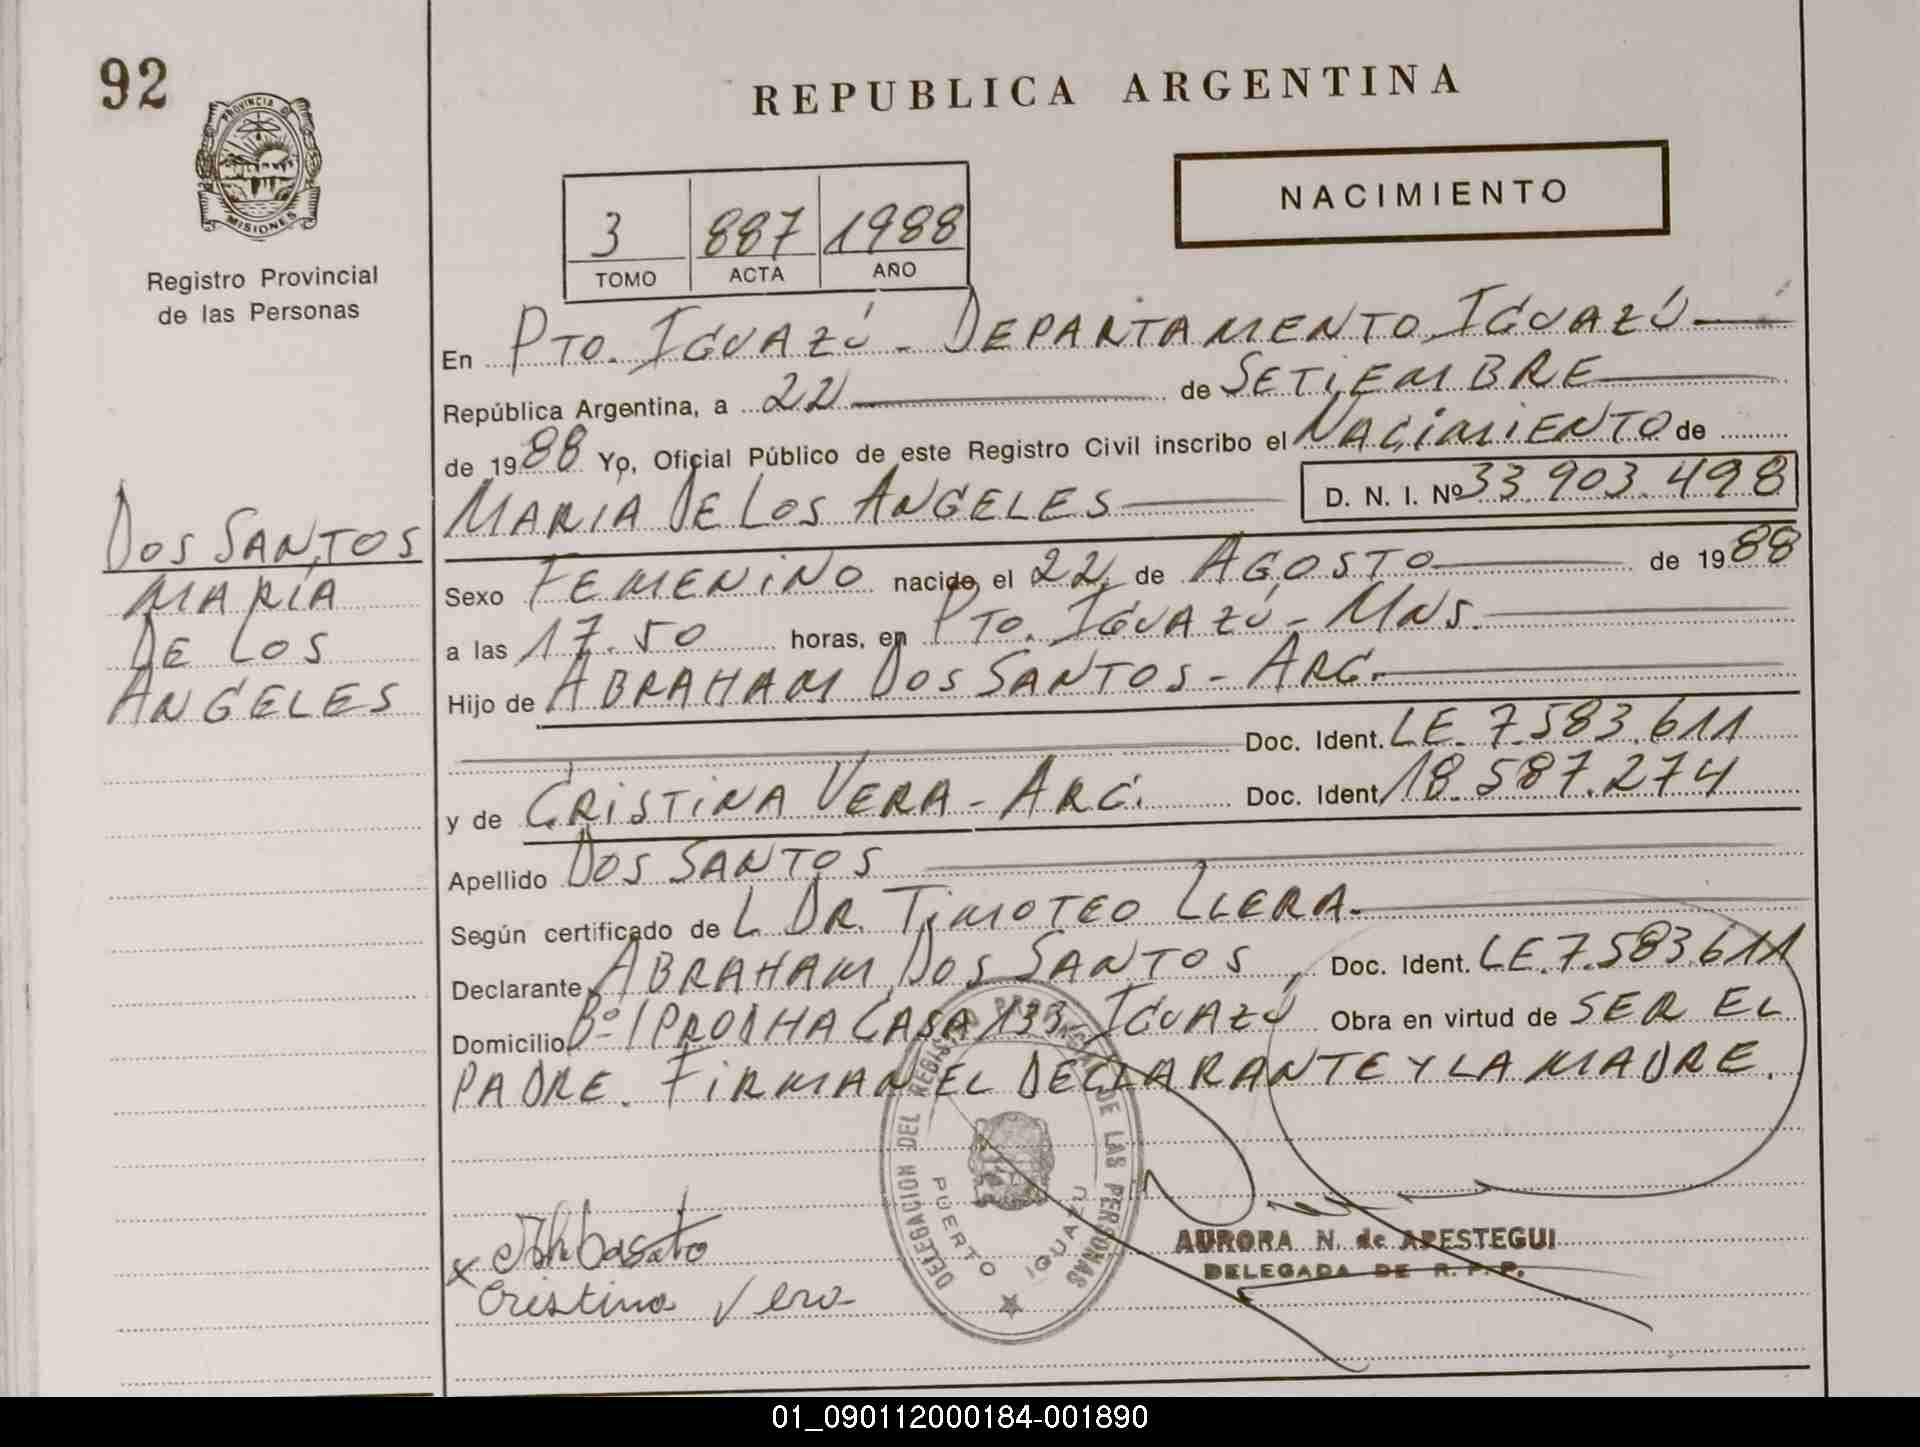 92
PROVINCIA DE
MISIONES
Registro Provincial
de las Personas
REPUBLICA ARGENTINA
NACIMIENTO
3 887 1988
TOMO ACTA AÑO
En Pto. Iguazú - Departamento Iguazú
República Argentina, a 22 de Setiembre
de 1988 Yo, Oficial Público de este Registro Civil inscribo el Nacimiento de
Maria De Los Angeles D. N. I. Nº 33.903.498
Dos Santos
María
De Los
Angeles
Sexo Femenino nacido el 22 de Agosto de 1988
a las 17.50 horas, en Pto. Iguazú - Mns.
Hijo de Abraham Dos Santos - Arg.
Doc. Ident. LE. 7.583.611
y de Cristina Vera - Arg. Doc. Ident. 18.587.274
Apellido Dos Santos
Según certificado de L. Dr. Timoteo Llera.
Declarante Abraham Dos Santos, Doc. Ident. LE. 7.583.611
Domicilio Bº IPRODHA Casa 133 - Iguazú Obra en virtud de ser el
padre. Firman el declarante y la madre.
DELEGACION DEL REGISTRO PROVINCIAL DE LAS PERSONAS
PUERTO IGUAZU
AURORA N. de APESTEGUI
DELEGADA DE R. P. P.
x
Cristina Vera
01_090112000184-001890